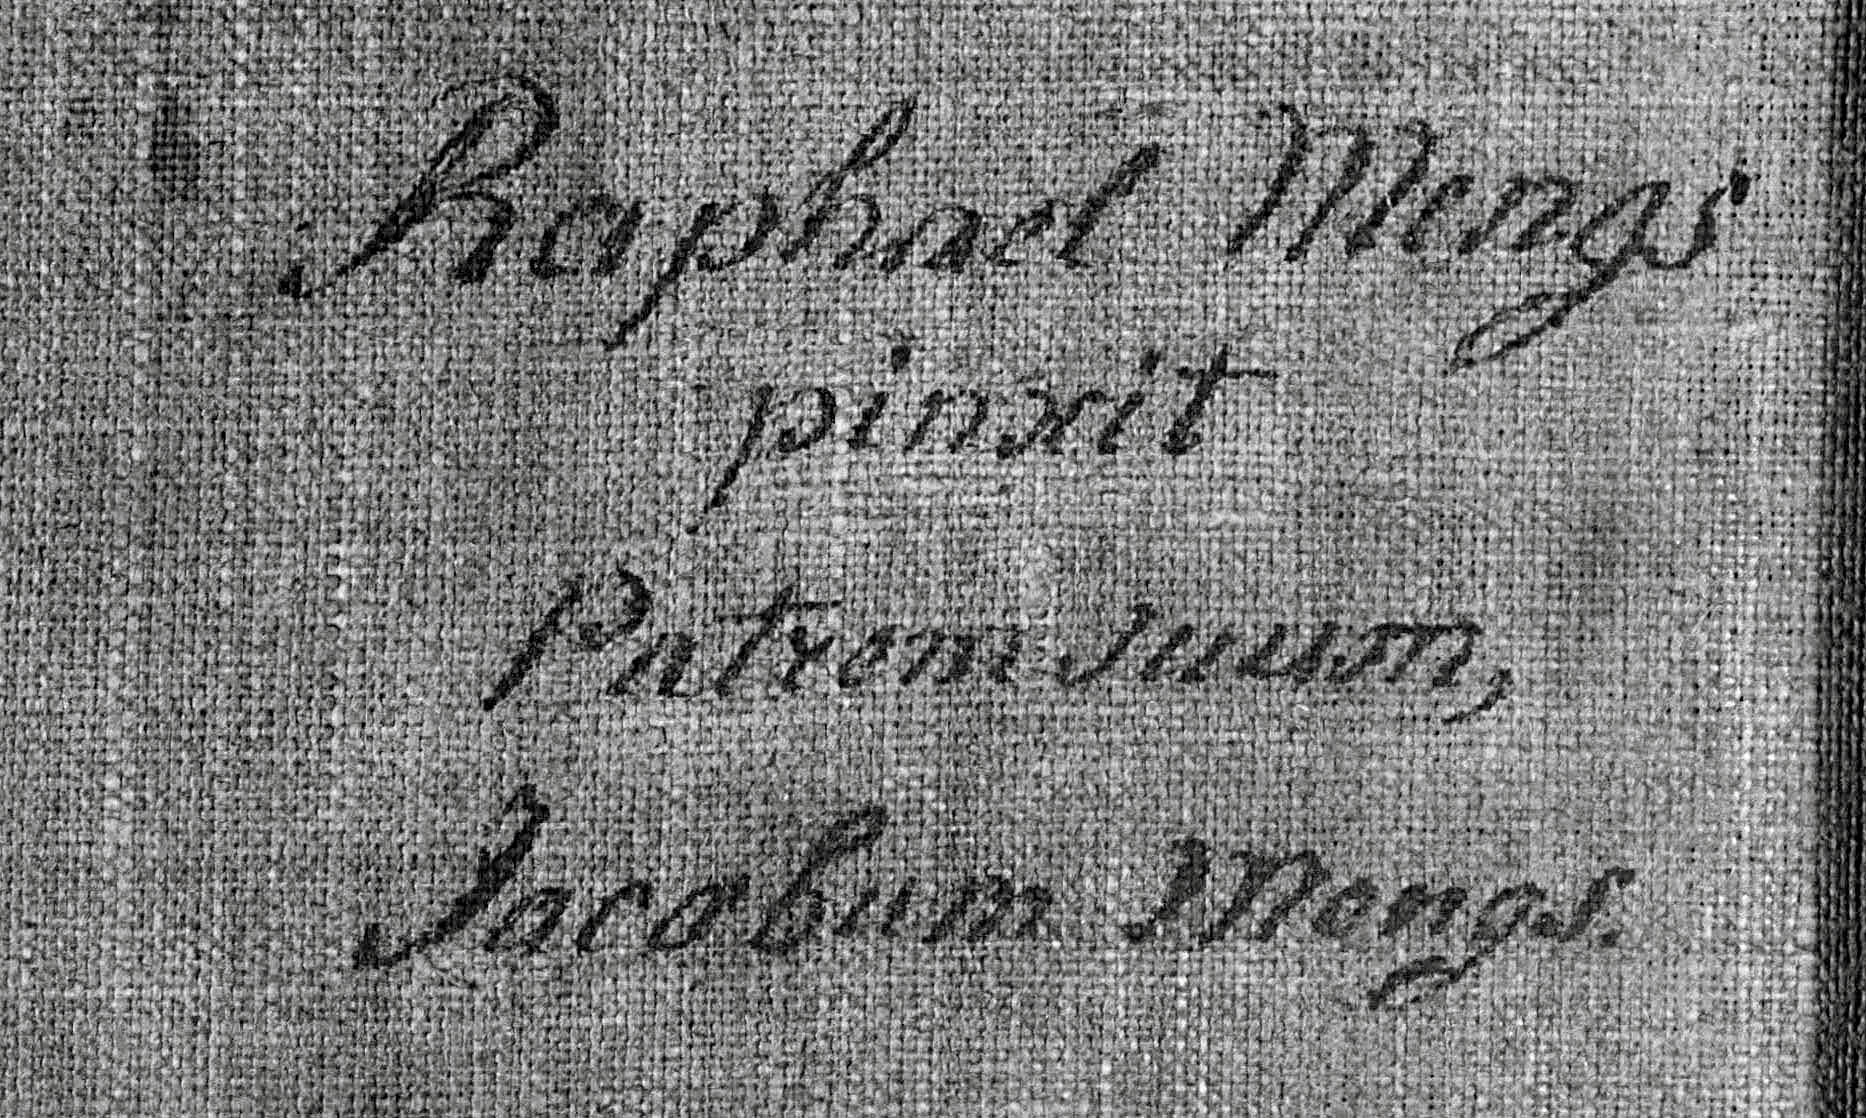 Raphael Mengs
pinxit
Patrem suum,
Jacobum Mengs.